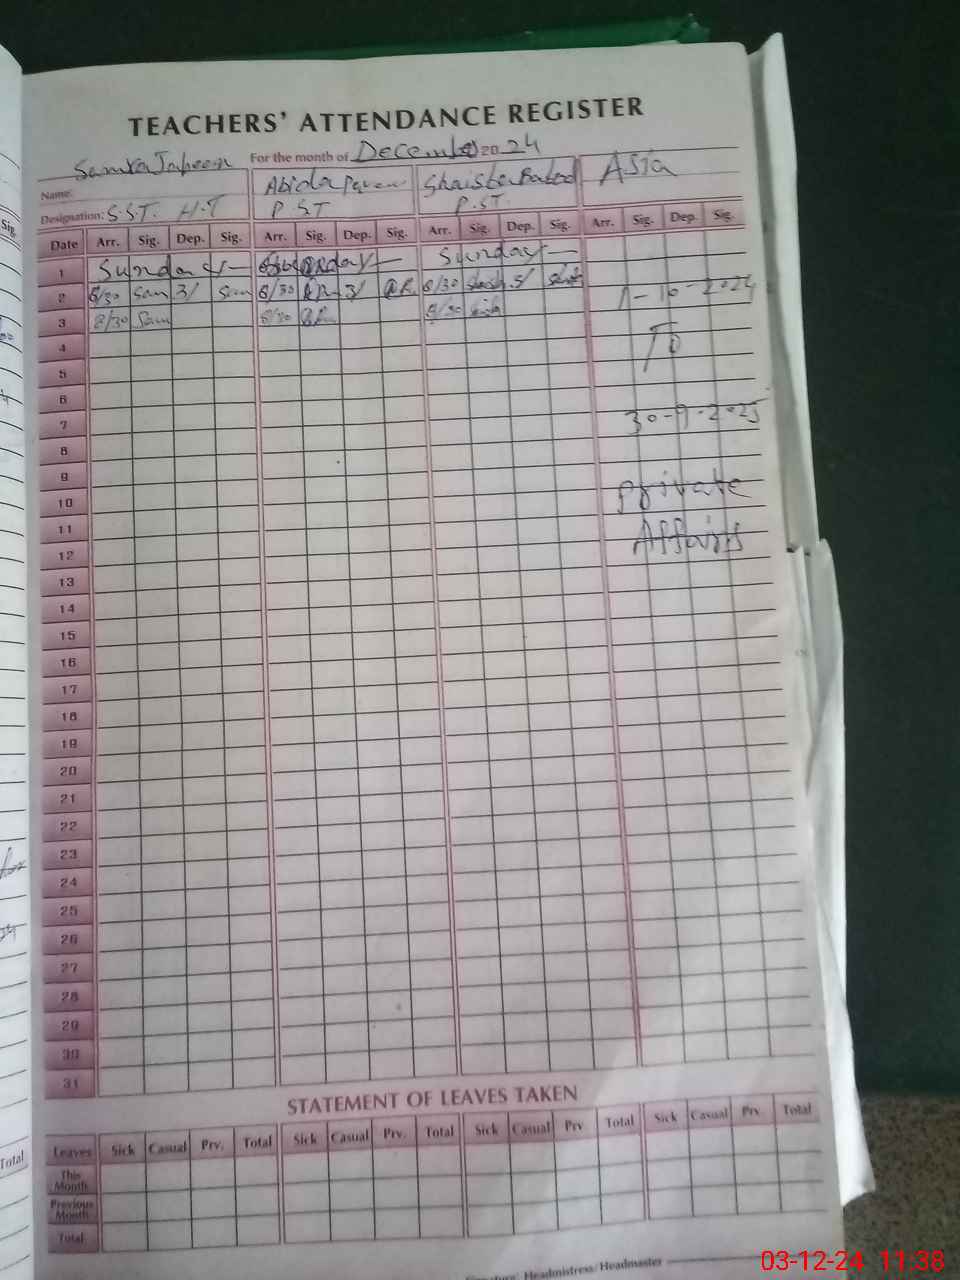 TEACHERS' ATTENDANCE REGISTER
For the month of December 20 24
Name: Abida Asia
Designation: S.S.T. H.T P.ST P.ST.
Date Arr. Sig. Dep. Sig. Arr. Sig. Dep. Sig. Arr. Sig. Dep. Sig. Arr. Sig. Dep. Sig.
1 Sunday Sunday
2 8/30 Sam 3/ Sam 8/30 3/ 8/30 1-10-2024
3 8/30 Sam 8/30 8/30
4 To
5
6
7 30-9-2025
8
9
10 Private
11
12 Affairs
13
14
15
16
17
18
19
20
21
22
23
24
25
26
27
28
29
30
31
STATEMENT OF LEAVES TAKEN
Leaves Sick Casual Prv. Total Sick Casual Prv. Total Sick Casual Prv. Total Sick Casual Prv. Total
This Month
Previous Month
Total
Signature, Headmistress/Headmaster
Sig.
Total
03-12-24 11:38